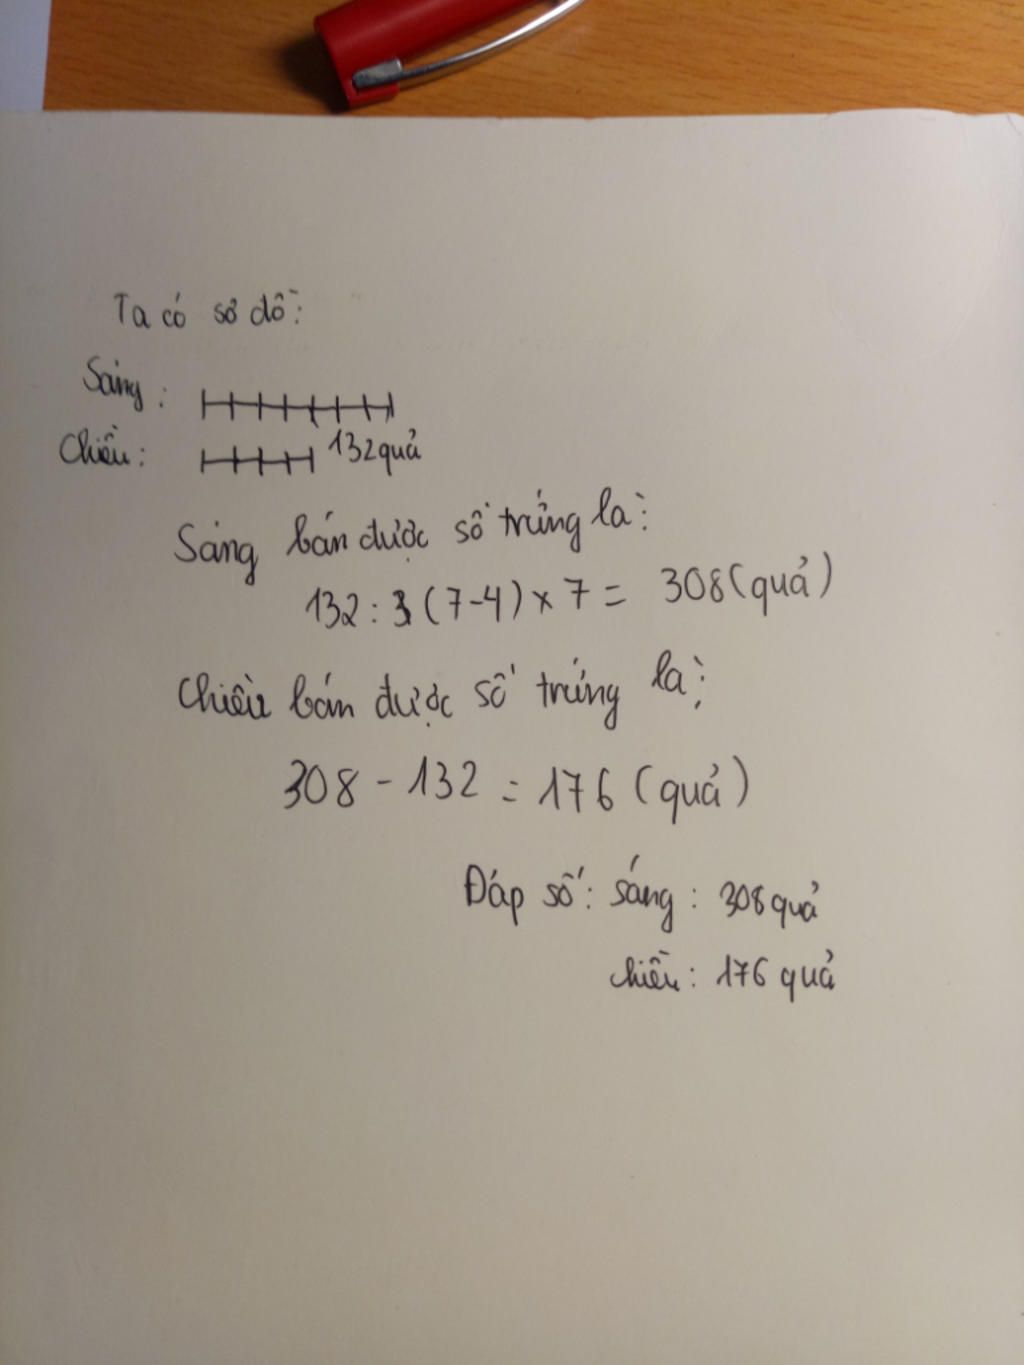 Ta có sơ đồ:
Sáng:
Chiều: 132 quả
Sáng bán được số trứng là:
132 : 3 (7-4) × 7 = 308 (quả)
Chiều bán được số trứng là:
308 - 132 = 176 (quả)
Đáp số: sáng: 308 quả
chiều: 176 quả